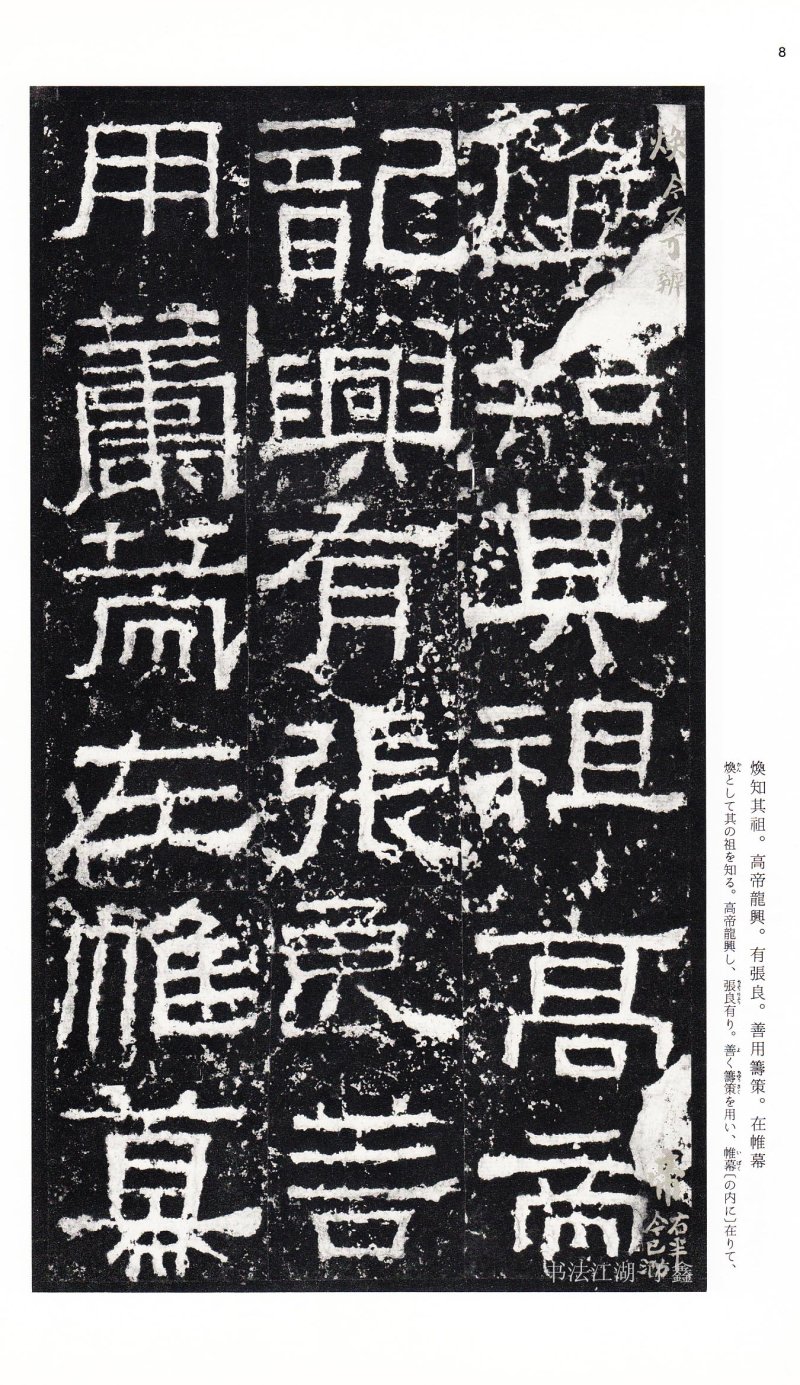 8
煥知其祖。高帝龍興。有張良。善用籌策。在帷幕
煥として其の祖を知る。高帝龍興し、張良有り。善く籌策を用い、帷幕〔の内に〕在りて、
煥今不可辨
知其祖高帝
右半
今已泐
龍興有張良善
用籌策在帷幕
书法江湖
鑫